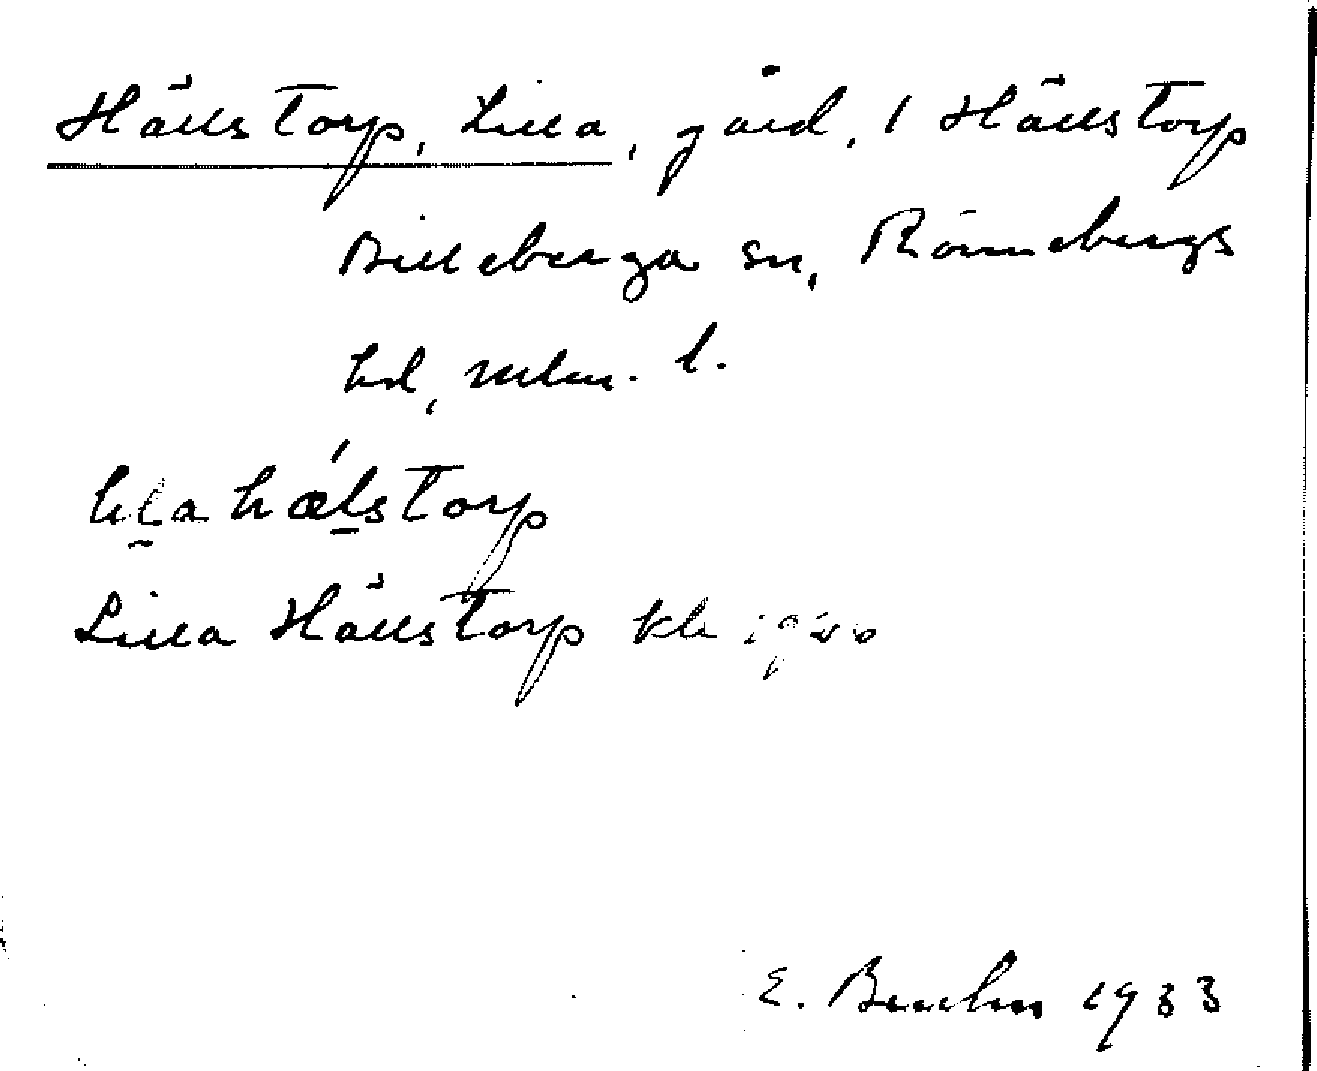 Hällstorp, Lilla, gård, i Hällstorp
Billeberga sn, Rönnebergs
hd, mlm. l.
lịla hǽl̠storp
Lilla Hällstorp
E. 1933